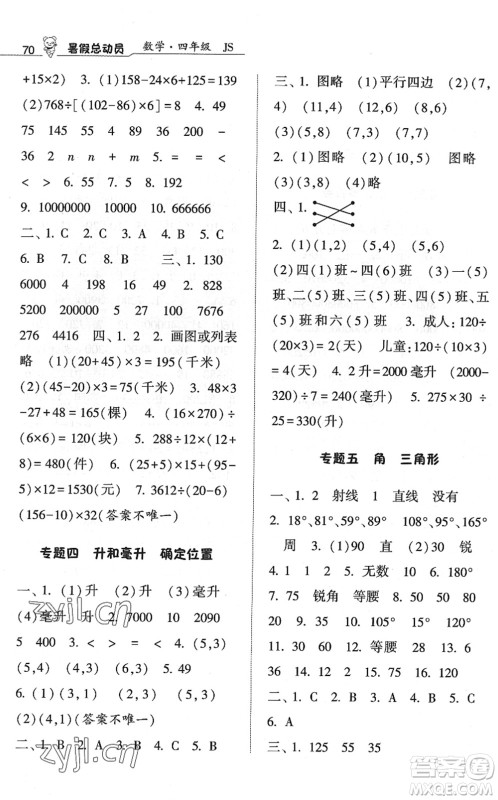 70 暑假总动员 数学·四年级 JS
+15×2) 3. (1)(158-24×5)×125
(2)768÷[(102-86)×6] 4. 49
75 145 55 2 31 45 51
36 2 n n + m 5. = = <
< > 6. 55 7. 55 8. 192
9. 10000000 10. 666666
二、1. C 2. C 3. A 4. C 5. C
6. B 7. C 8. B 三、1. 130
6000 4 930 90 37 208
5200 200000 5 127 7676
276 4416 四、1. 2 2. 画图或列表
略 (1)(20+45)×3=195(千米)
(2)(45-20)×3=75(千米) 3. 48×3
-27-48=69(棵) 4. (16×270)÷
(6×6)=120(块) 5. 288÷[2×(9+
6)÷2×12=480(件) 6. (156-
5)×10=1530(元) 7. 3612÷
(156-10)×32(答案不唯一)
专题四 升和毫升 确定位置
一、1. (1)升 (2)升 (3)毫升
(4)毫升 升 2. 7000 10 2090
5 400 3. < > = < 4. (5,3)
(5,4) (5,3) (4,3) 5. (4,3)
6. (1)(3,1) (3,2) (3,3)
(2)(4,1)(答案不唯一)
二、1. B 2. C 3. A 4. B
三、1. 图略 (1)(平行四边)形
(2)(11,4) (12,6) (8,6)
(3)(5,4) (6,6) (2,6)
2. (1)图略 (2)(10,5) 图略
(3)(3,8) (4)略
四、1.
2. (1)(1,2) (5,4) (2,4)
(2)(四(5)班~四(6)班) (3)(一
(5)班、二(5)班、三(5)班、四
(5)班和五(5)班) 3. 成人:120÷
(20×3)=2(天) 儿童:120÷(10×3)
=4(天) 4. 2升=2000毫升 (2000-
320)÷7=240(毫升) 5. 275×30÷
25=330(升)
专题五 角 三角形
一、1. 2 射线 1 直线 没有
2. 18°、89° 91°、179° 180° 360°
周 3. > < = > < =
4. 1 12 5. 无数 1 6. 150
7. 50 锐角 8. 60 9. 等腰
10. 75 30 锐角 等腰
11. 30 60 12. 45
二、1. C 2. B 3. A 4. A 5. C
6. A
三、1. 125 55 35
zyjl.cn
zyjl.cn